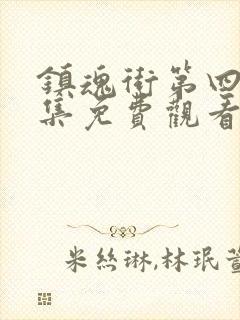 鎮魂街第四
集免費觀看
米絲琳,林珉萱